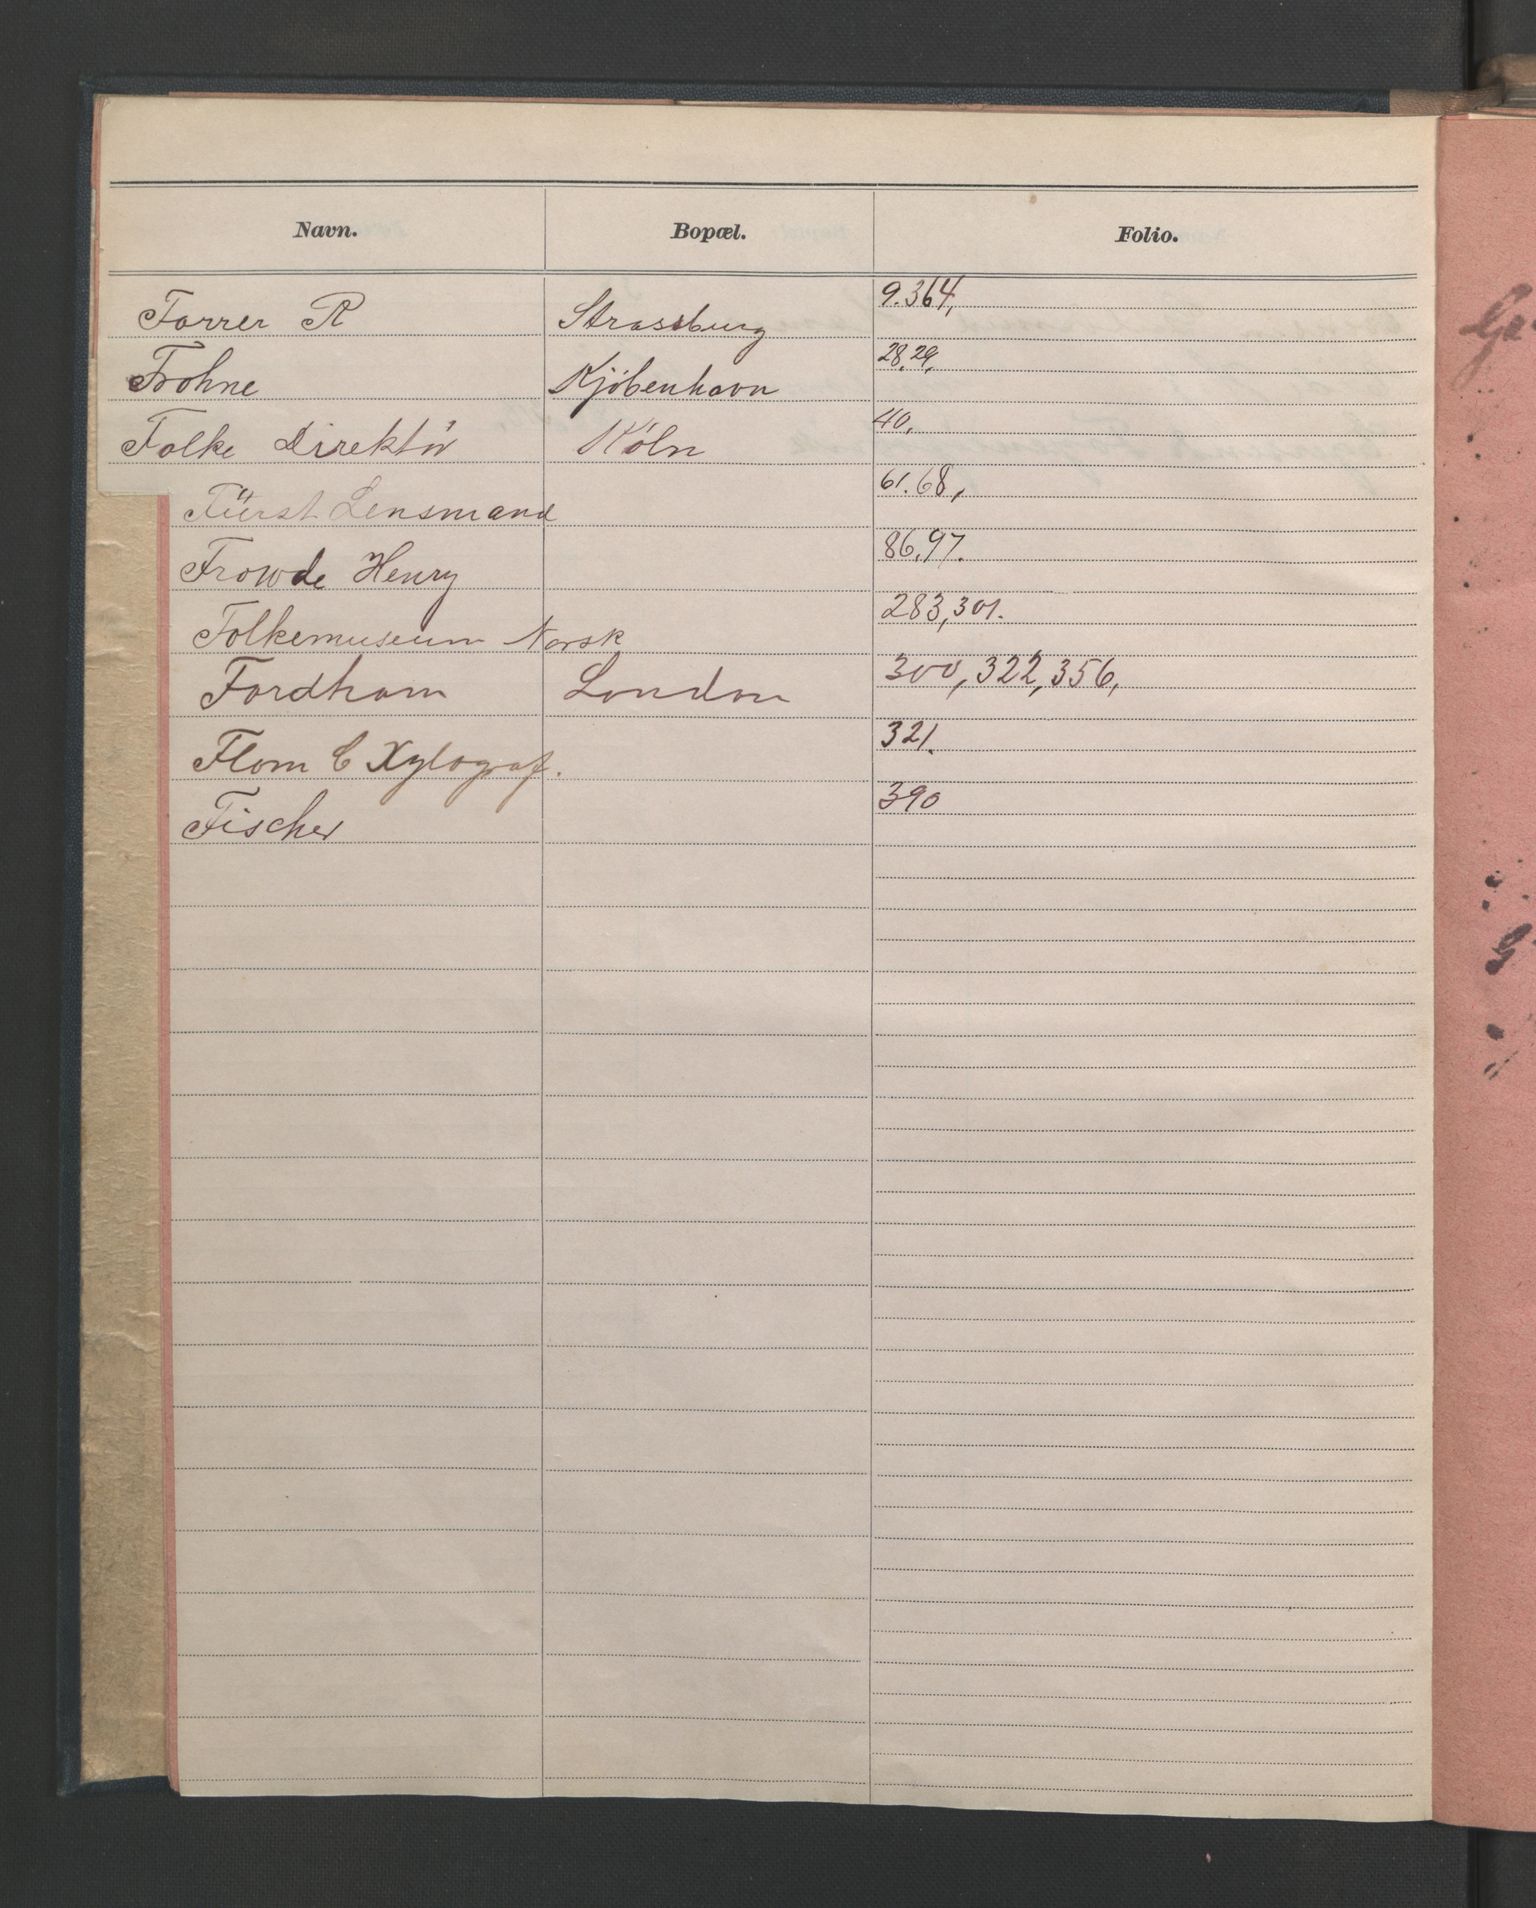 Navn. Bopæl. Folio.
Forrer R Strassburg 9.364,
Frohne Kjöbenhavn 28,29,
Folke Direktör Köln 40,
Fürst Lensmand 61.68,
Frowde Henry 86,97.
Folkemuseum Norsk 283,301.
Fordham London 300,322,356,
Flom C Xylograf. 321.
Fischer 390